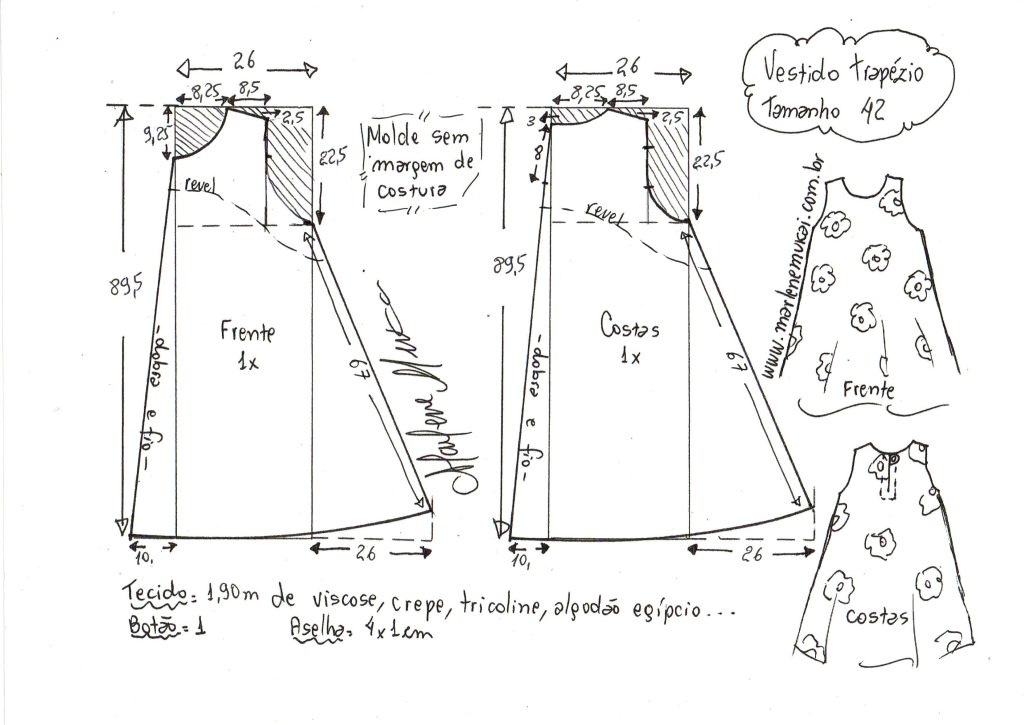 Vestido trapézio
Tamanho 42
26
8,25
8,5
2,5
9,25
22,5
Molde sem
margem de
costura
revel
89,5
Frente
1x
- dobra e fio -
67
10,
26
Marlene Mukai
26
8,25
8,5
3
2,5
8
22,5
revel
89,5
Costas
1x
- dobra e fio -
67
10,
26
www.marlenemukai.com.br
Frente
costas
Tecido = 1,90m de viscose, crepe, tricoline, algodão egípcio...
Botão = 1
Aselha = 4x1cm